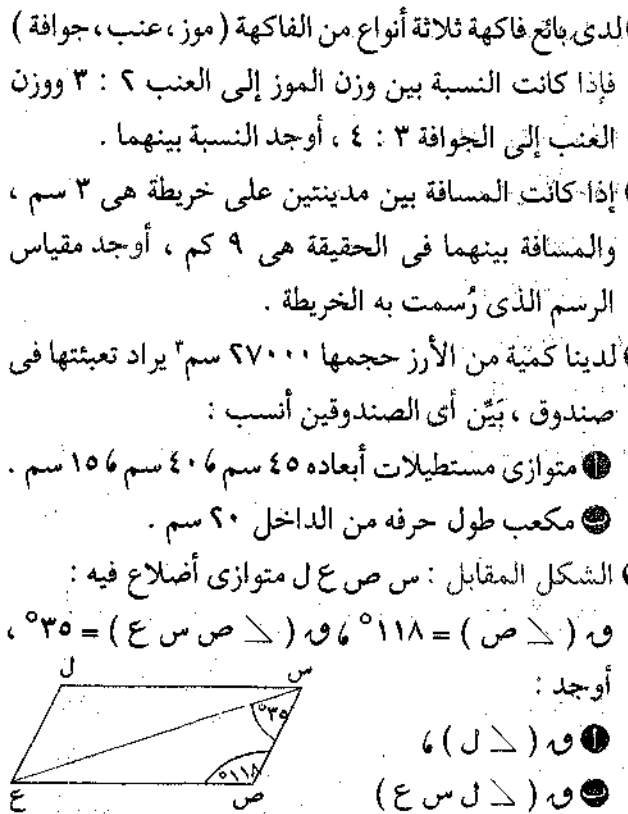 لدى بائع فاكهة ثلاثة أنواع من الفاكهة ( موز ، عنب ، جوافة )
فإذا كانت النسبة بين وزن الموز إلى العنب ٢ : ٣ ووزن
العنب إلى الجوافة ٣ : ٤ ، أوجد النسبة بينهما .
إذا كانت المسافة بين مدينتين على خريطة هى ٣ سم ،
والمسافة بينهما فى الحقيقة هى ٩ كم ، أوجد مقياس
الرسم الذى رُسمت به الخريطة .
لدينا كمية من الأرز حجمها ٢٧٠٠٠ سم٣ يراد تعبئتها فى
صندوق ، بَيِّن أى الصندوقين أنسب :
أ متوازى مستطيلات أبعاده ٤٥ سم ، ٤٠ سم ، ١٥ سم .
ب مكعب طول حرفه من الداخل ٢٠ سم .
الشكل المقابل : س ص ع ل متوازى أضلاع فيه :
ق ( ∠ ص ) = ١١٨° ، ق ( ∠ ص س ع ) = ٣٥° ،
أوجد :
أ ق ( ∠ ل ) ،
ب ق ( ∠ ل س ع )
س
ل
٣٥°
١١٨°
ص
ع